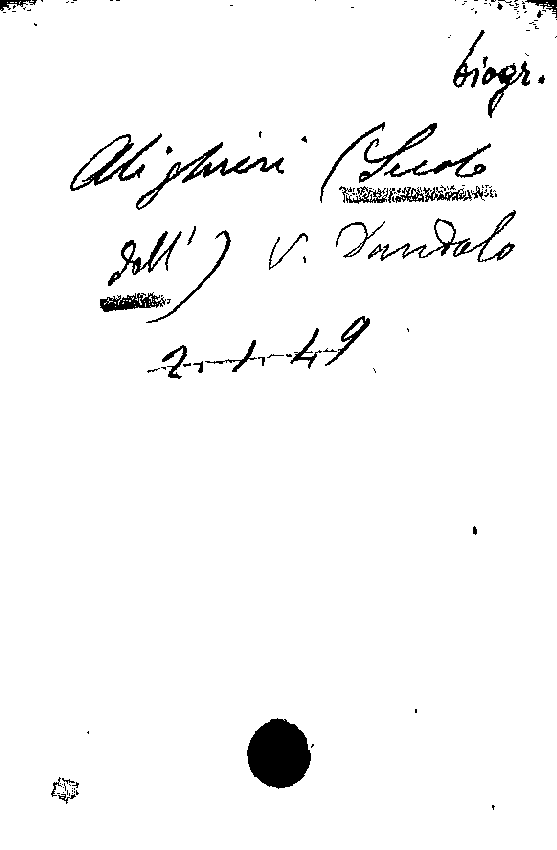 biogr.
Alighieri (Secolo
dell') v. Dandolo
2.1.49